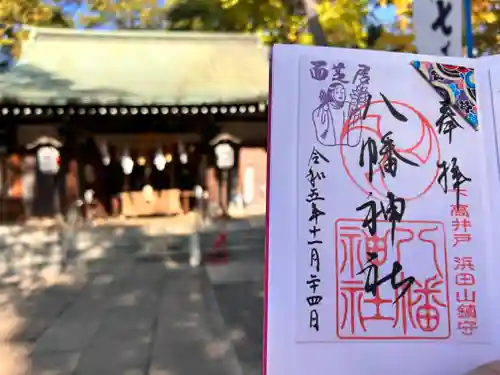 奉拝
下高井戸 浜田山鎮守
八幡神社
八幡
神社
令和五年十一月二十四日